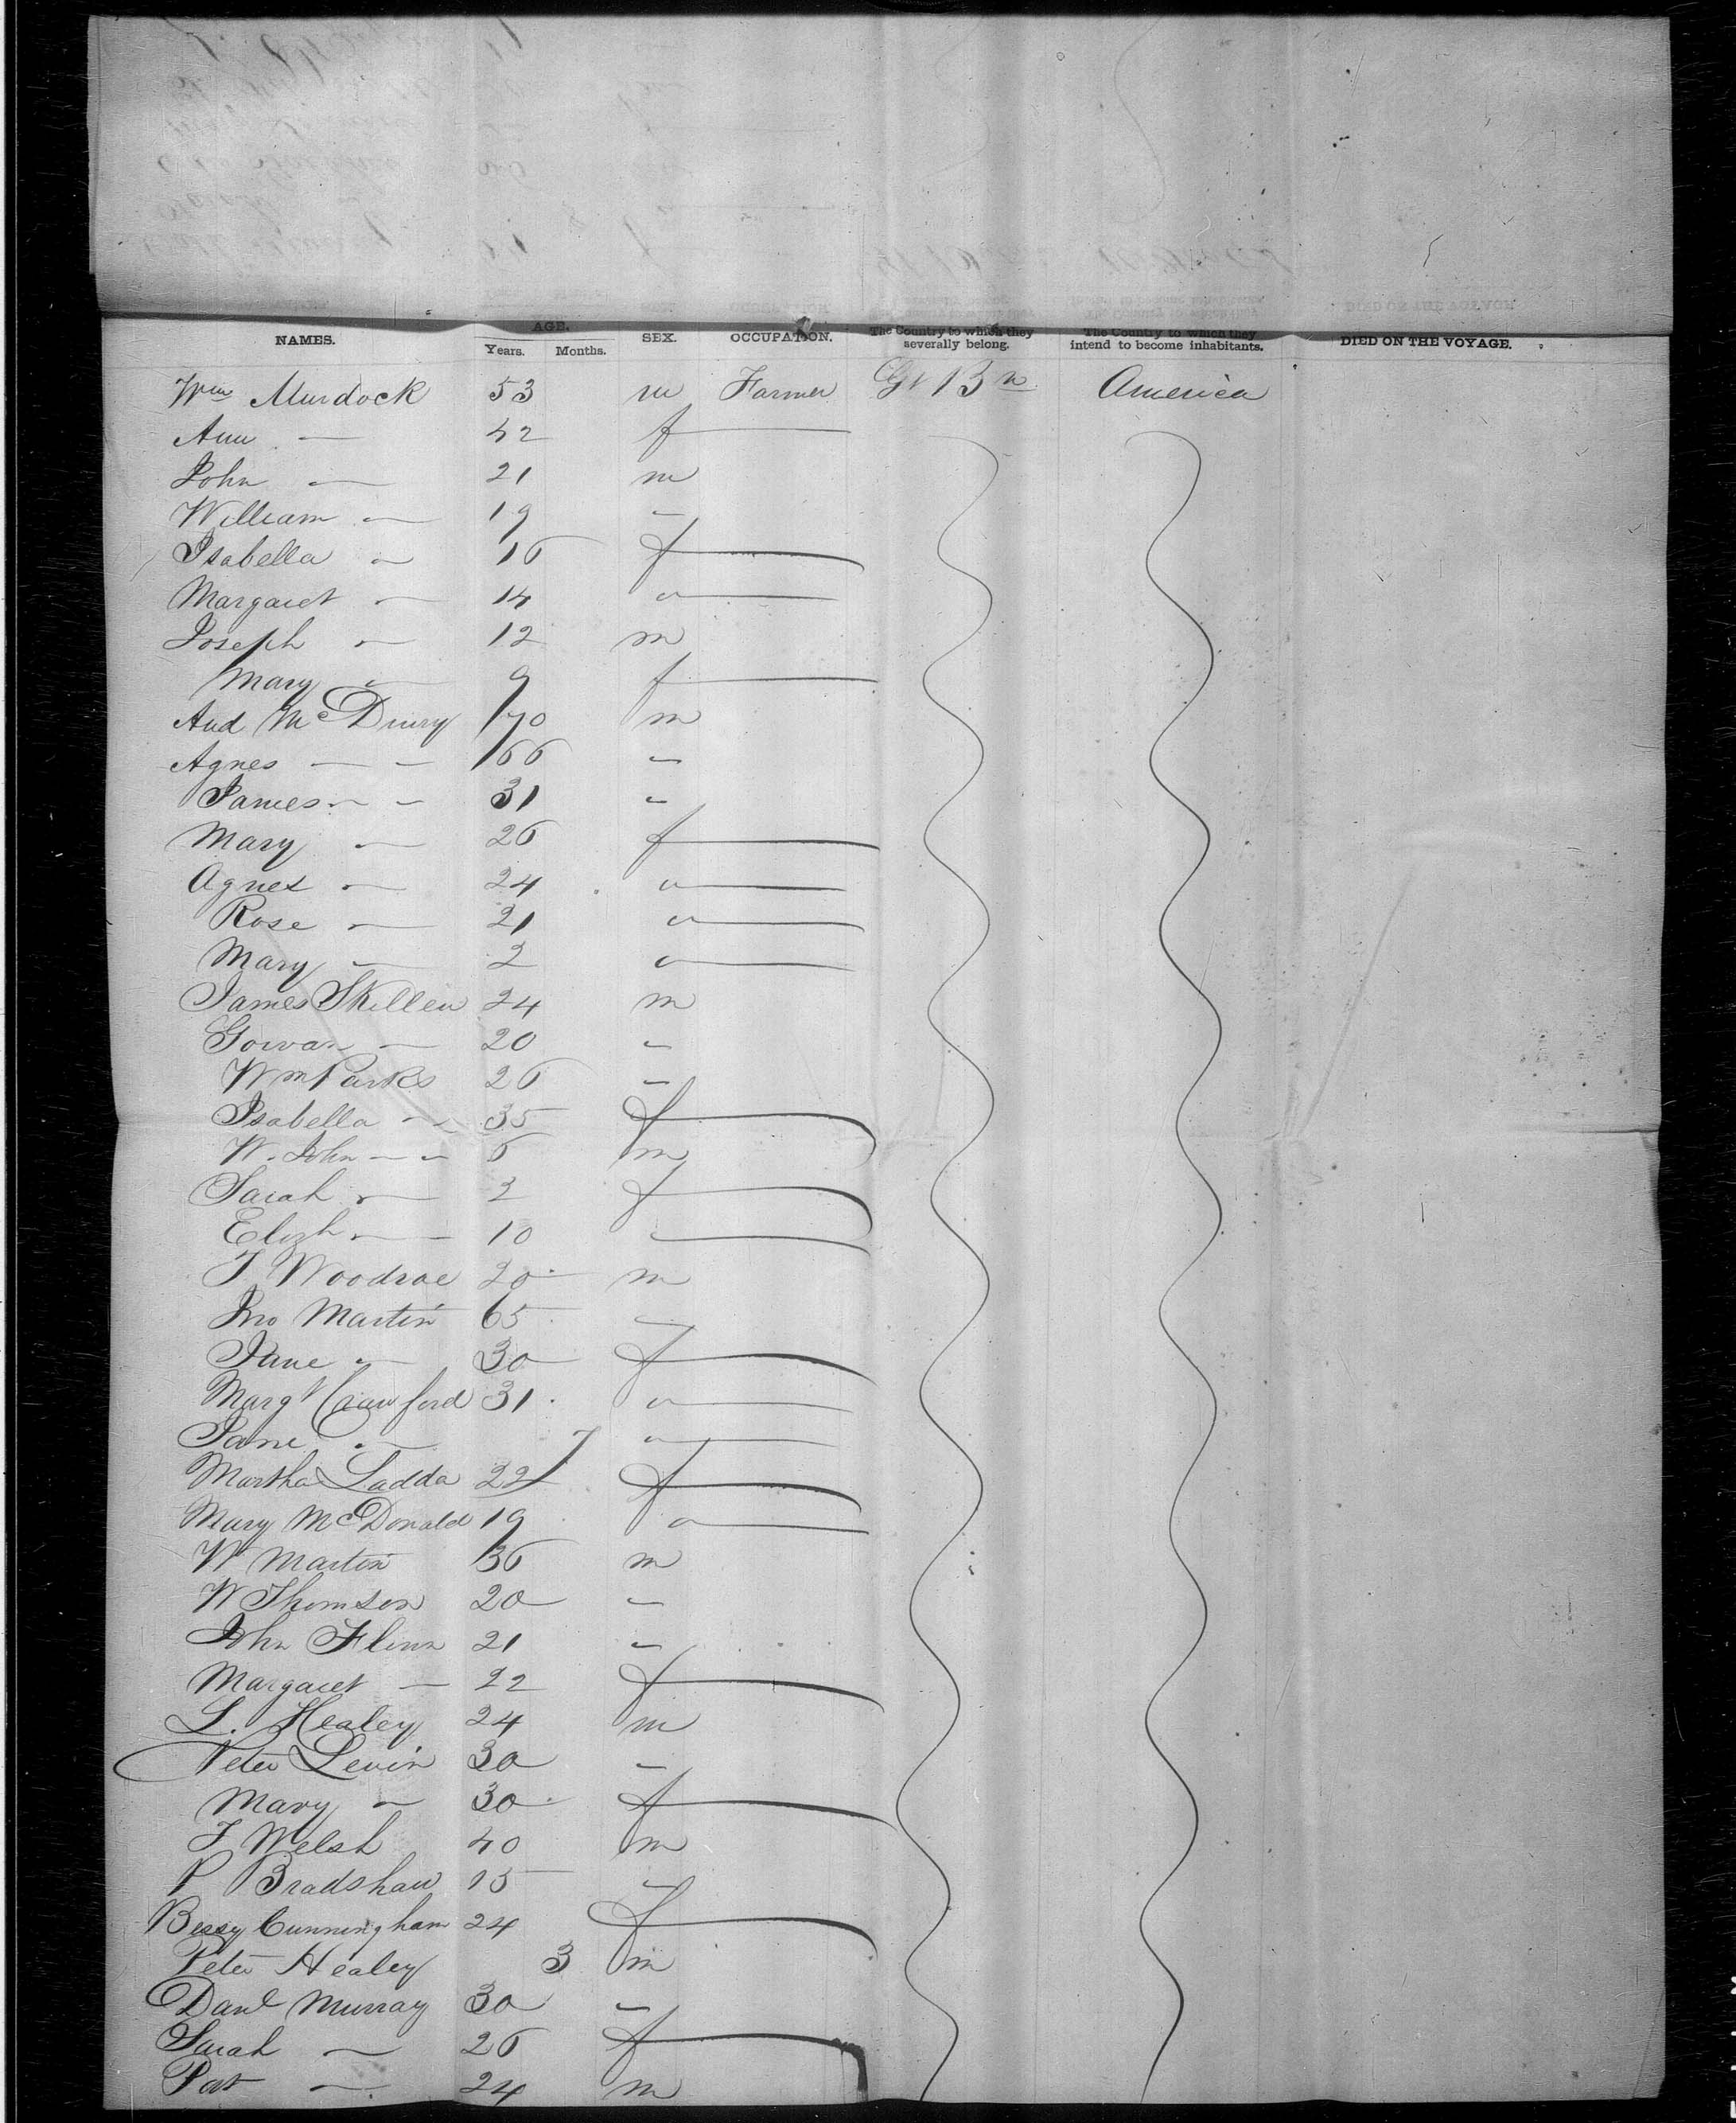 NAMES. AGE. Years. Months. SEX. OCCUPATION. The Country to which they severally belong. The Country to which they intend to become inhabitants. DIED ON THE VOYAGE.
Wm Murdock 53 m Farmer Gt Bn America
Ann — 42 f
John — 21 m
William — 19 "
Isabella — 16 f
Margaret — 14 "
Joseph — 12 m
Mary — 9 f
And McDrury 70 m
Agnes — — 66 "
James — — 31 "
Mary — 26 f
Agnes — 24 "
Rose — 21 "
Mary — 2 "
James Skillen 24 m
Gowan — 20 "
Wm Parks 26 "
Isabella — 35 f
W. John — — 6 m
Sarah — 2 f
Elizh — — 10 "
J Woodroe 20 m
Jno Martin 65 "
Jane — 30 f
Margt Crawford 31 "
Jane — 7 "
Martha Ladda 22 f
Mary McDonald 19 "
W Martin 36 m
W Thomson 20 "
John Flinn 21 "
Margaret — 22 f
L. Healey 24 m
Peter Levin 30 "
Mary — 30 f
J Welsh 40 m
P Bradshaw 15 "
Bessy Cunningham 24 f
Peter Healey 3 m
Danl Murray 30 "
Sarah — 26 f
Pat — 24 m